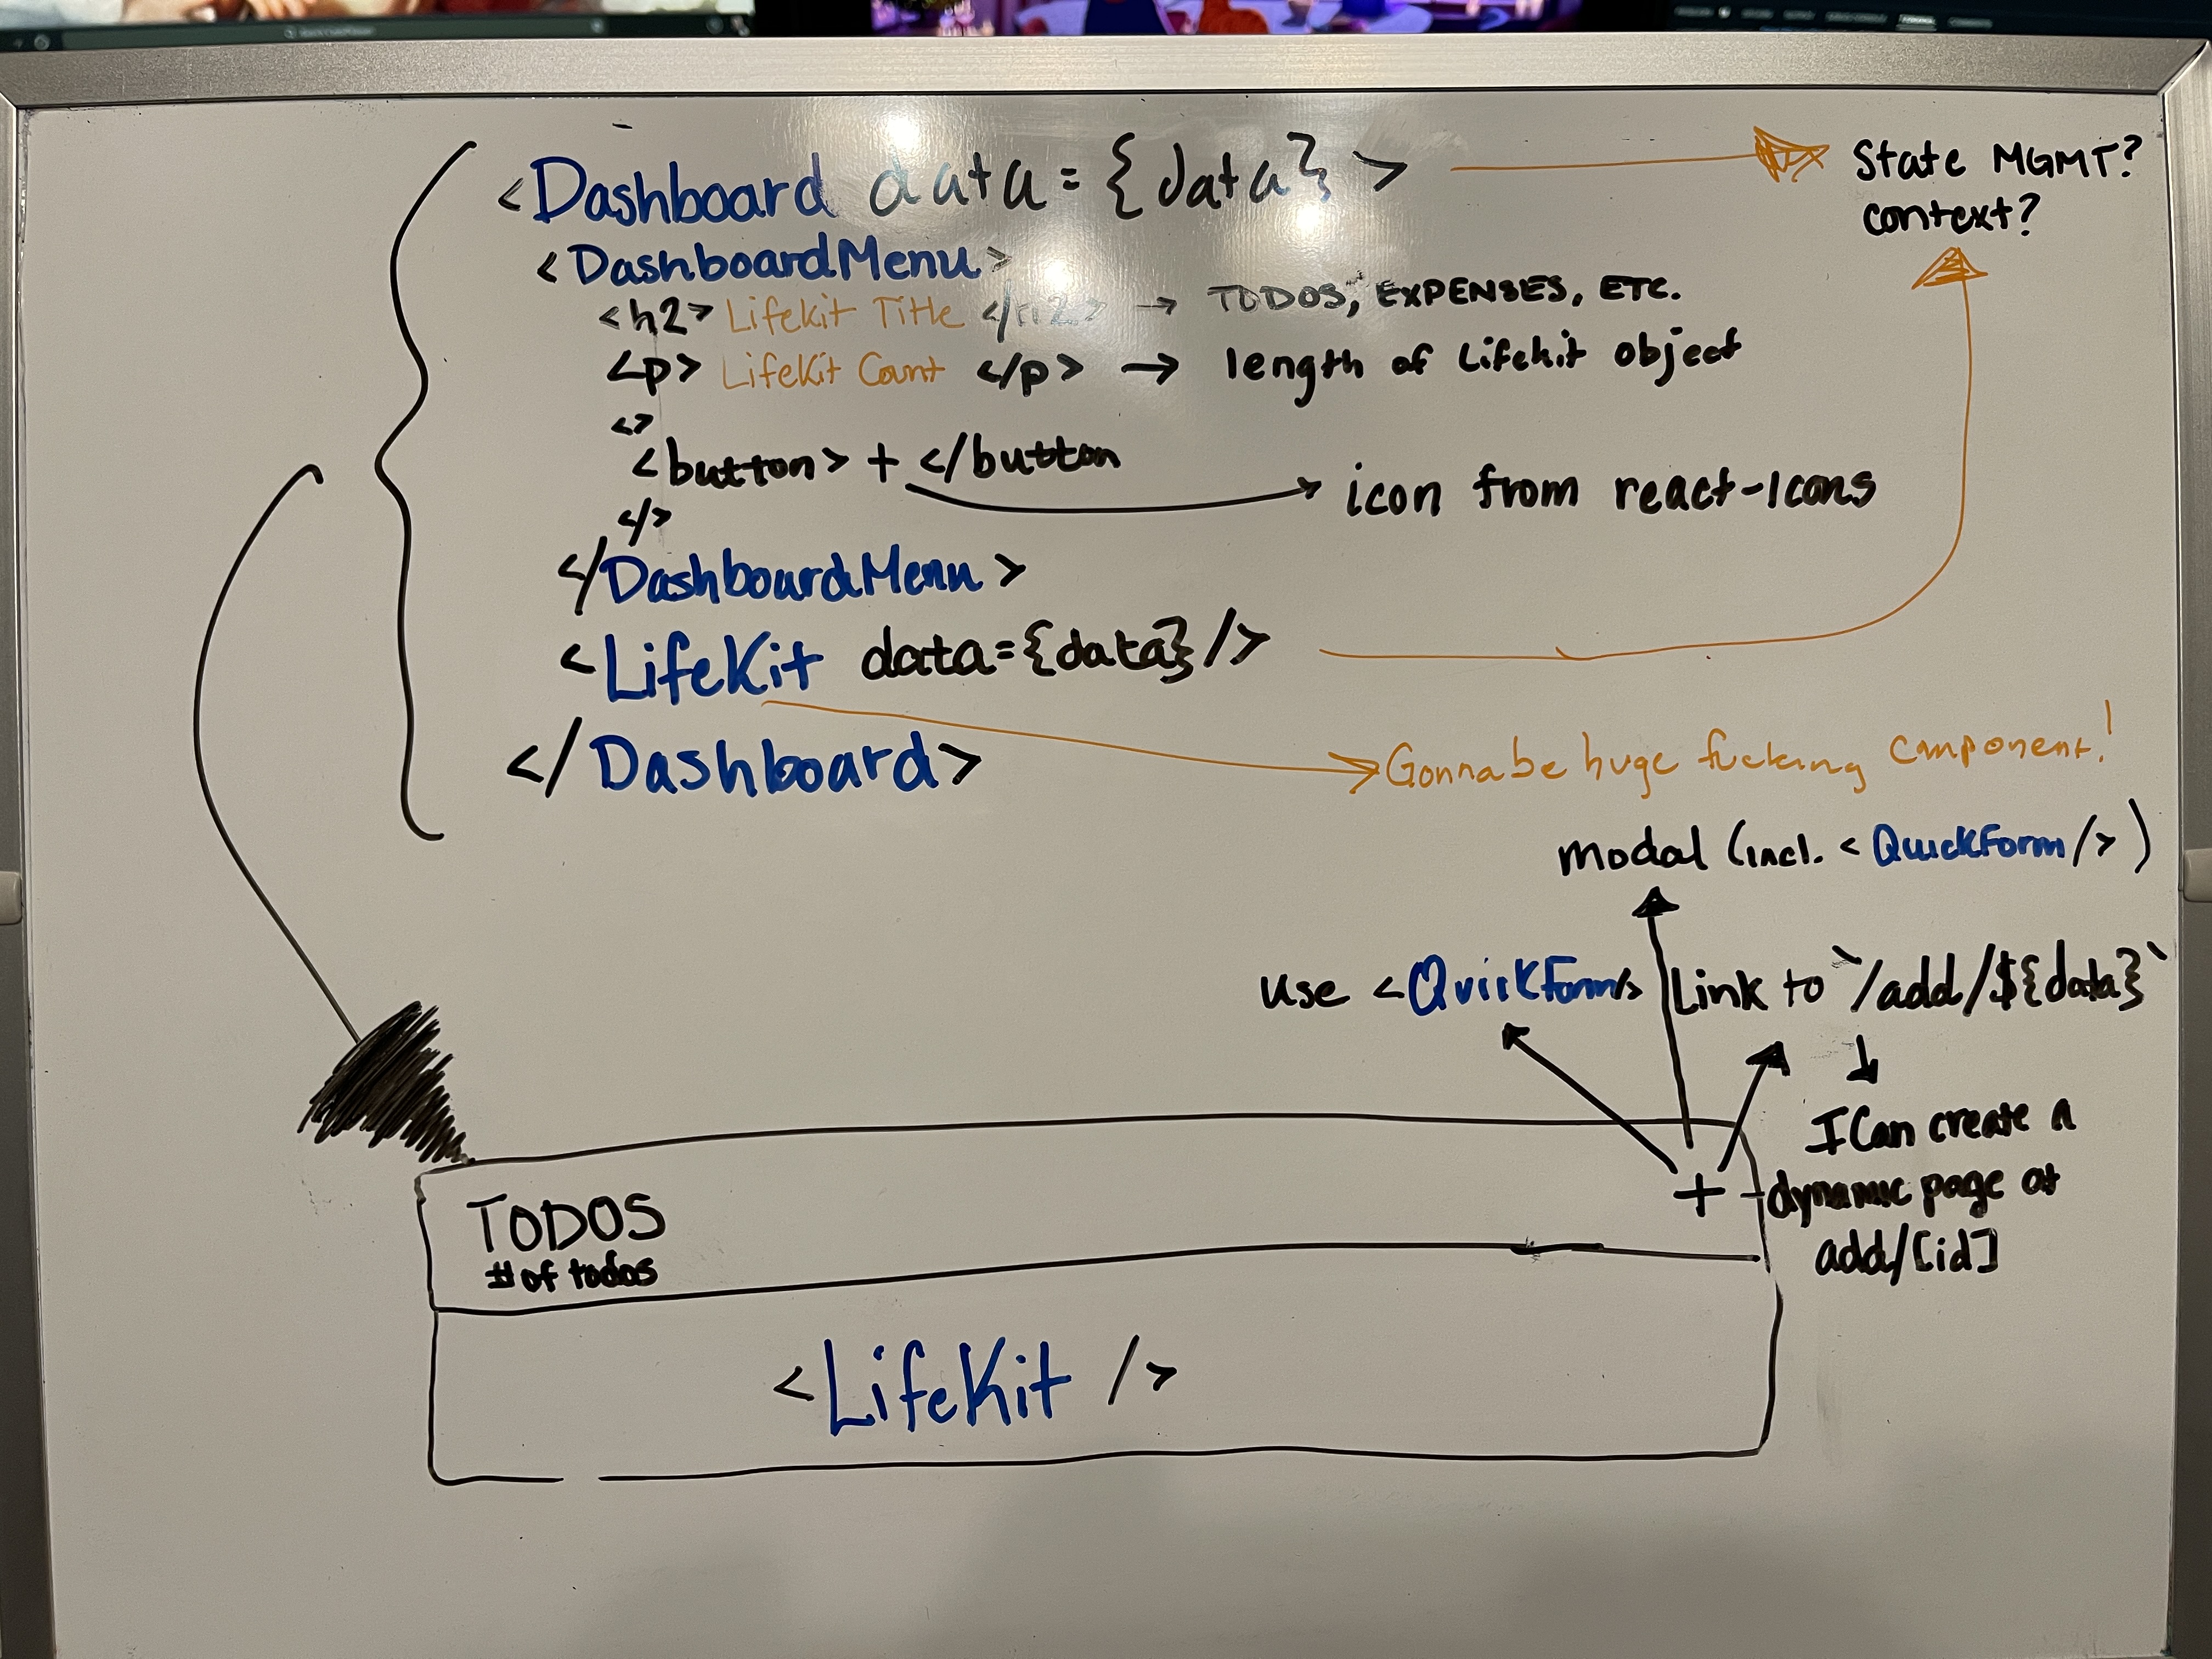 <Dashboard data={data}> State MGMT?
context?
<DashboardMenu>
<h2> Lifekit Title </h2> → TODOS, EXPENSES, ETC.
<p> LifeKit Count </p> → length of Lifekit object
<>
<button> + </button
icon from react-icons
</>
</DashboardMenu>
<LifeKit data={data}/>
</Dashboard>
Gonna be huge fucking component!
modal (incl. <QuickForm/>)
use <QuickForm/>
Link to `/add/${data}`
I Can create a
dynamic page at
add/[id]
+
TODOS
# of todos
<LifeKit />